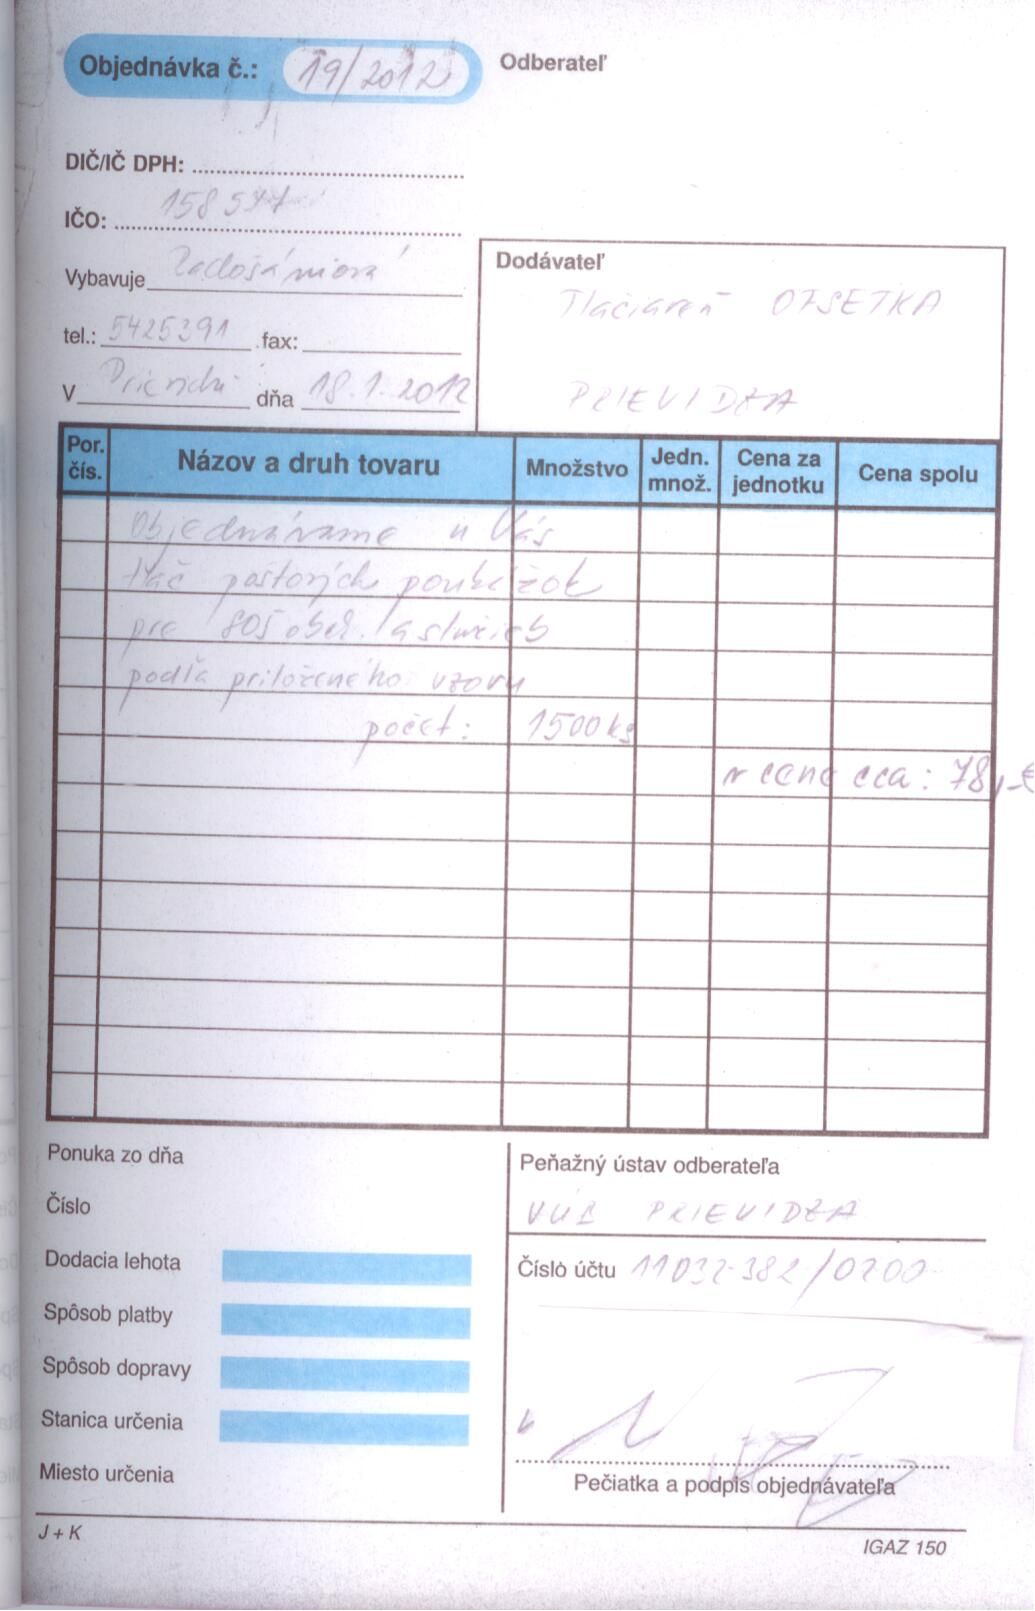 Objednávka č.: 19/2012
Odberateľ
DIČ/IČ DPH:
IČO: 158 577
Vybavuje
tel.: 5425391 fax:
V Prievidzi dňa 18.1.2012
Dodávateľ
Tlačiareň OFSETKA
PRIEVIDZA
Por. čís. Názov a druh tovaru Množstvo Jedn. množ. Cena za jednotku Cena spolu
Objednávame u Vás
tlač poštových poukážok
pre SOŠ obch. a služieb
podľa priloženého vzoru
počet: 1500 ks
v cene cca: 78,-€
Ponuka zo dňa
Číslo
Dodacia lehota
Spôsob platby
Spôsob dopravy
Stanica určenia
Miesto určenia
Peňažný ústav odberateľa
VÚB PRIEVIDZA
Číslo účtu 11032-382/0200
Pečiatka a podpis objednávateľa
J + K
IGAZ 150